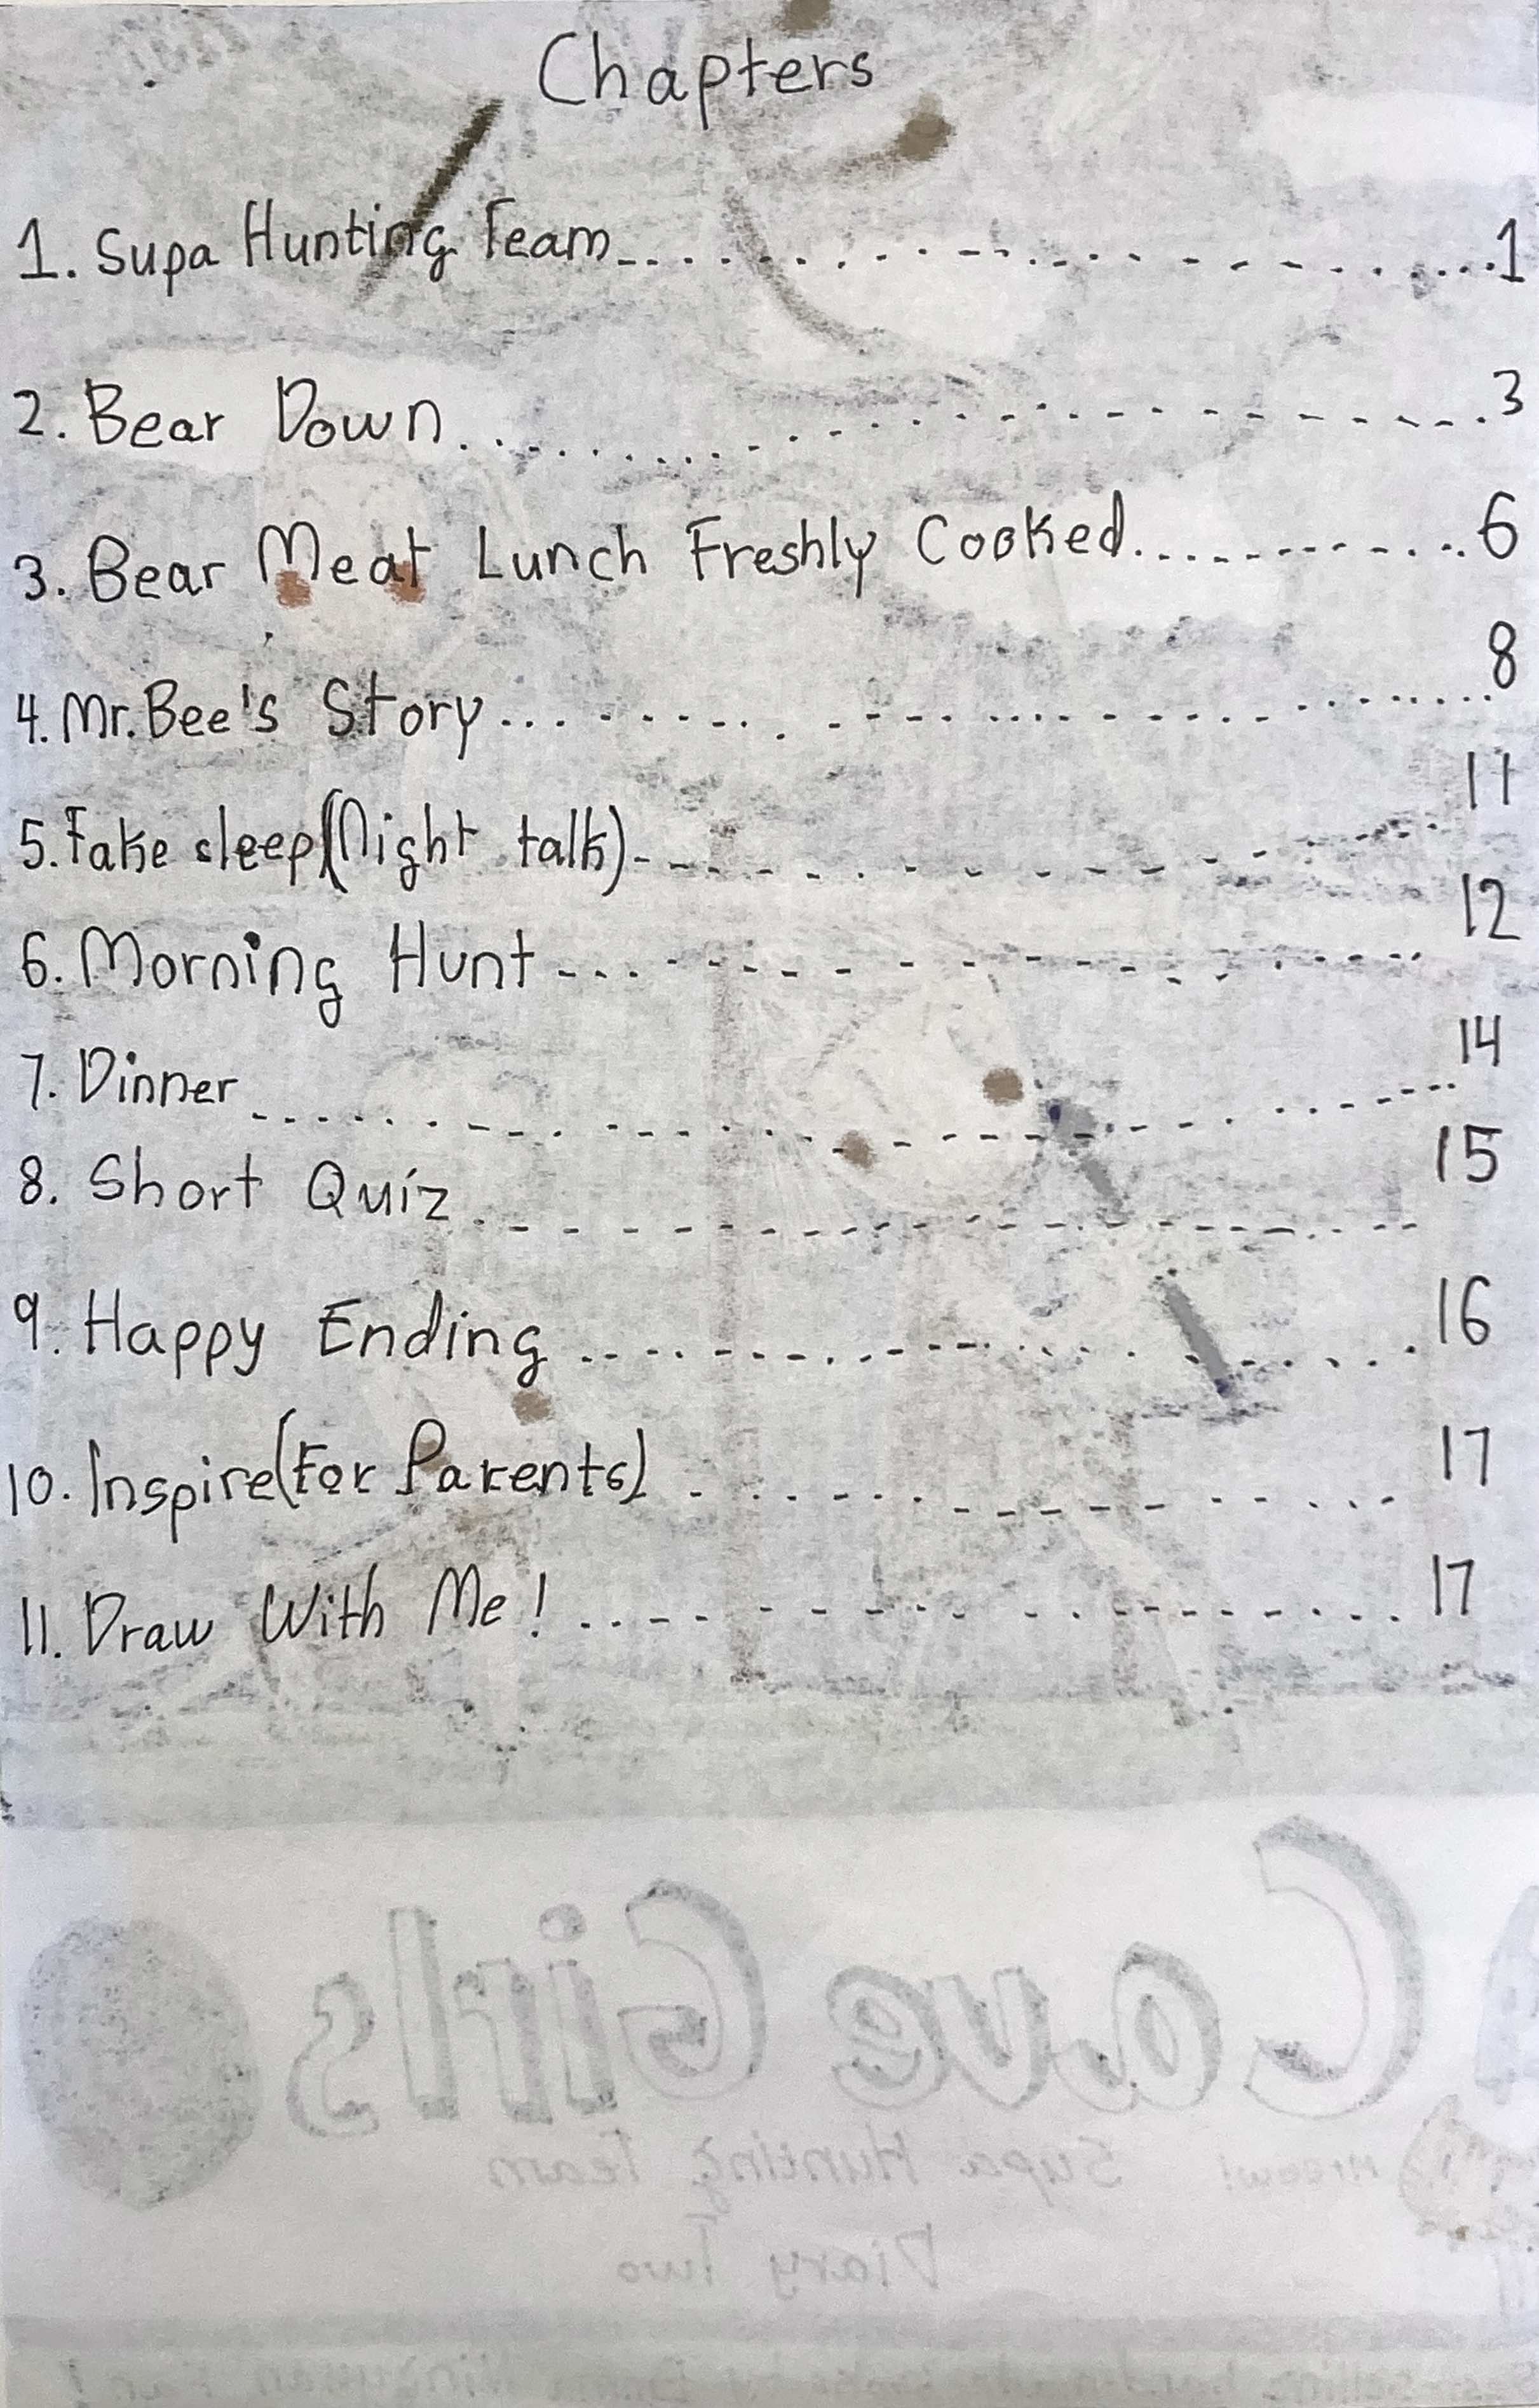 Chapters
1. Supa Hunting Team.....................1
2. Bear Down.....................3
3. Bear Meat Lunch Freshly Cooked.............6
4. Mr. Bee's Story.....................8
5. Fake sleep(Night talk)................11
6. Morning Hunt.....................12
7. Dinner.....................14
8. Short Quiz.....................15
9. Happy Ending.....................16
10. Inspire(For Parents).................17
11. Draw With Me!.....................17
Cave Girls
meow!
Supa Hunting Team
Diary Two